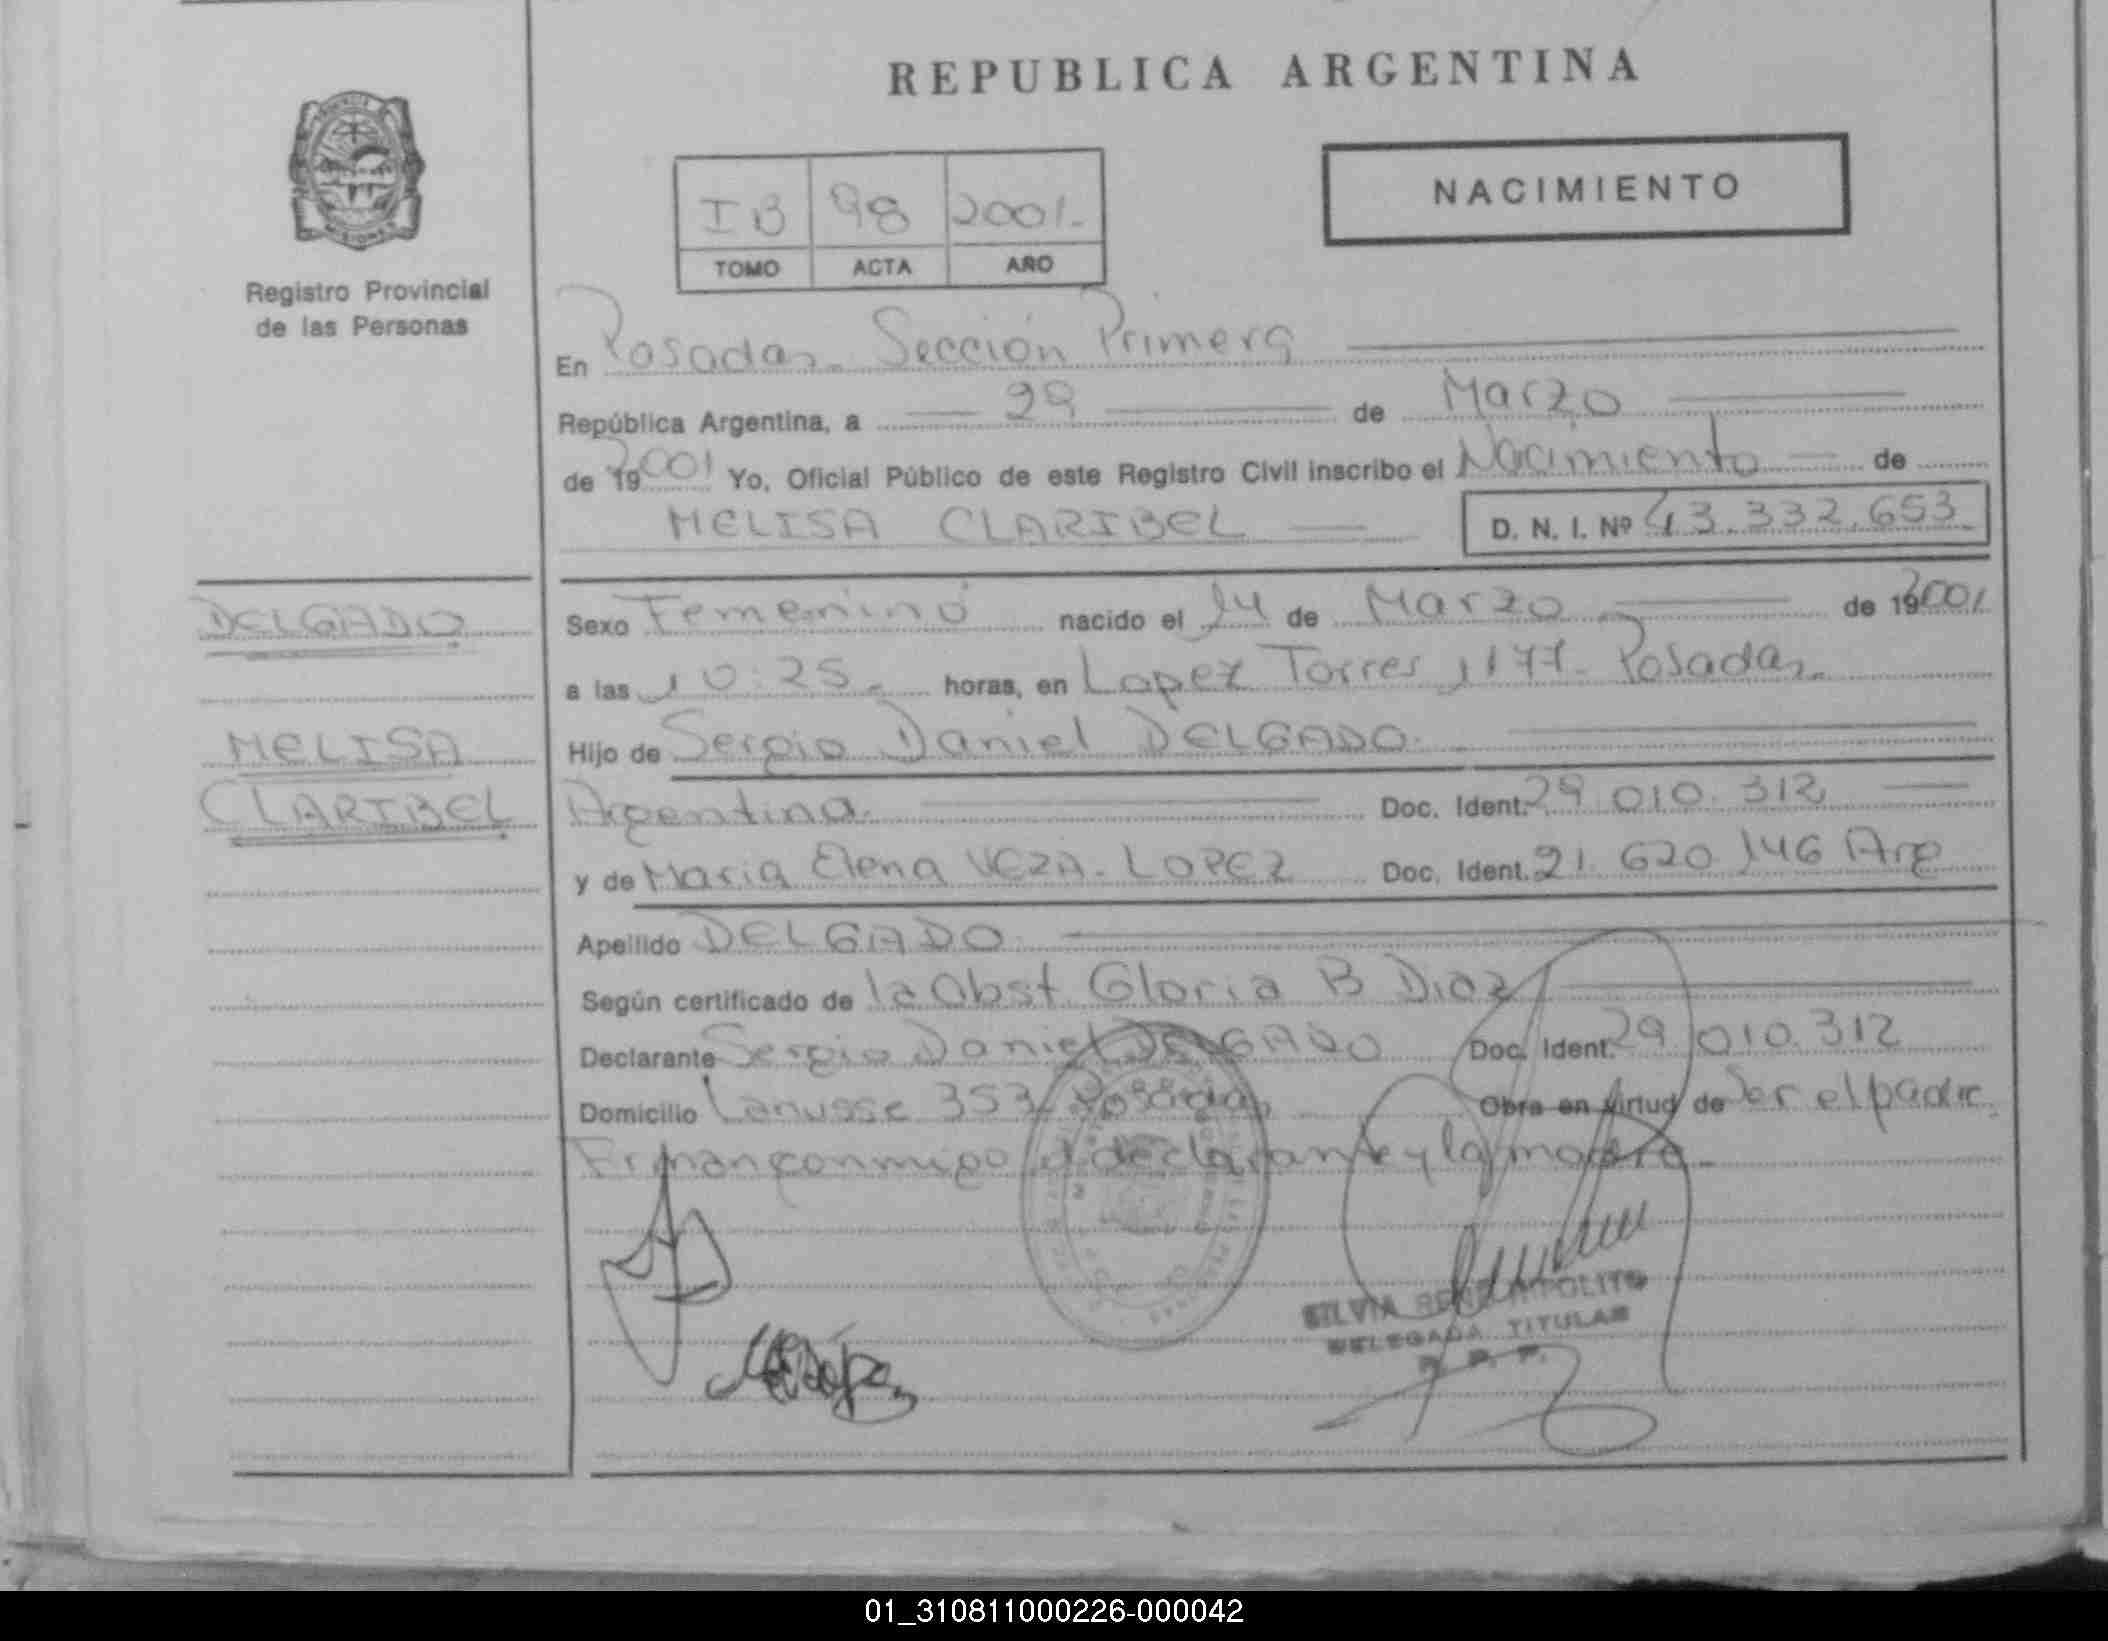 REPUBLICA ARGENTINA
NACIMIENTO
IB 98 2001.
TOMO ACTA AÑO
MISIONES
Registro Provincial
de las Personas
En Posadas. Sección Primera
República Argentina, a 29 de Marzo
de 19 2001 Yo, Oficial Público de este Registro Civil inscribo el Nacimiento de
MELISA CLARIBEL D. N. I. Nº 43.332.653
DELGADO
MELISA
CLARIBEL
Sexo Femenino nacido el 14 de Marzo de 19 2001
a las 10:25. horas, en Lopez Torres 1177. Posadas.
Hijo de Sergio Daniel DELGADO.
Argentina. Doc. Ident. 29.010.312
y de Maria Elena VEZA-LOPEZ Doc. Ident. 21.620.146 Arg
Apellido DELGADO
Según certificado de la Obst Gloria B Diaz
Declarante Sergio Daniel DELGADO Doc. Ident. 29.010.312
Domicilio Lanusse 353 Posadas Obra en virtud de Ser el padre.
Firman conmigo el declarante y la madre.
SILVIA RENE HIPOLITO
DELEGADA TITULAR
R. P. P.
01_310811000226-000042